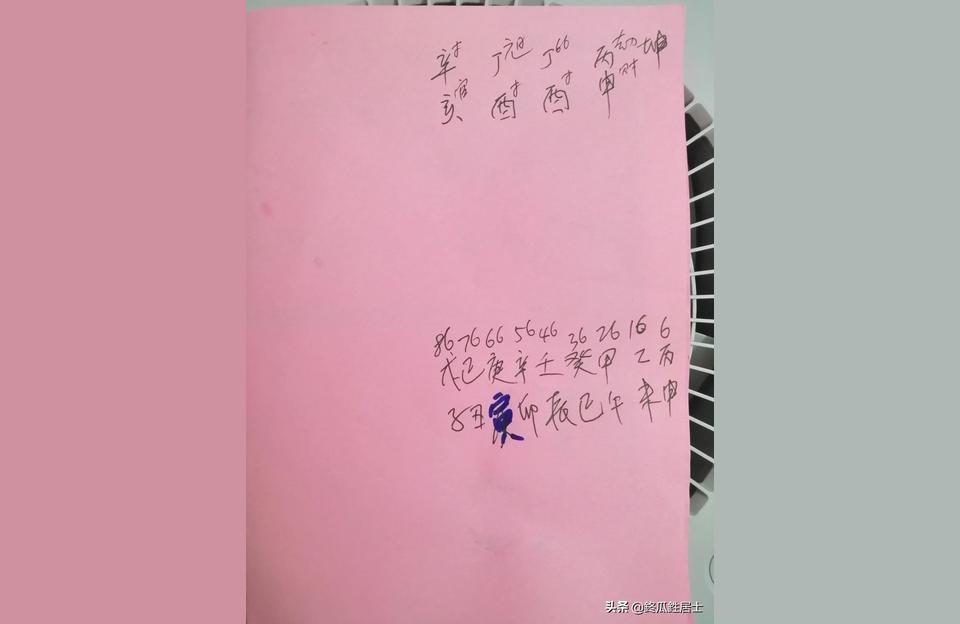 辛才 丁 丁比 丙劫财 坤
亥官 酉才 酉才 申
86 76 66 56 46 36 26 16 6
戊 己 庚 辛 壬 癸 甲 乙 丙
子 丑 寅 卯 辰 巳 午 未 申
头条 @終瓜鉎居士